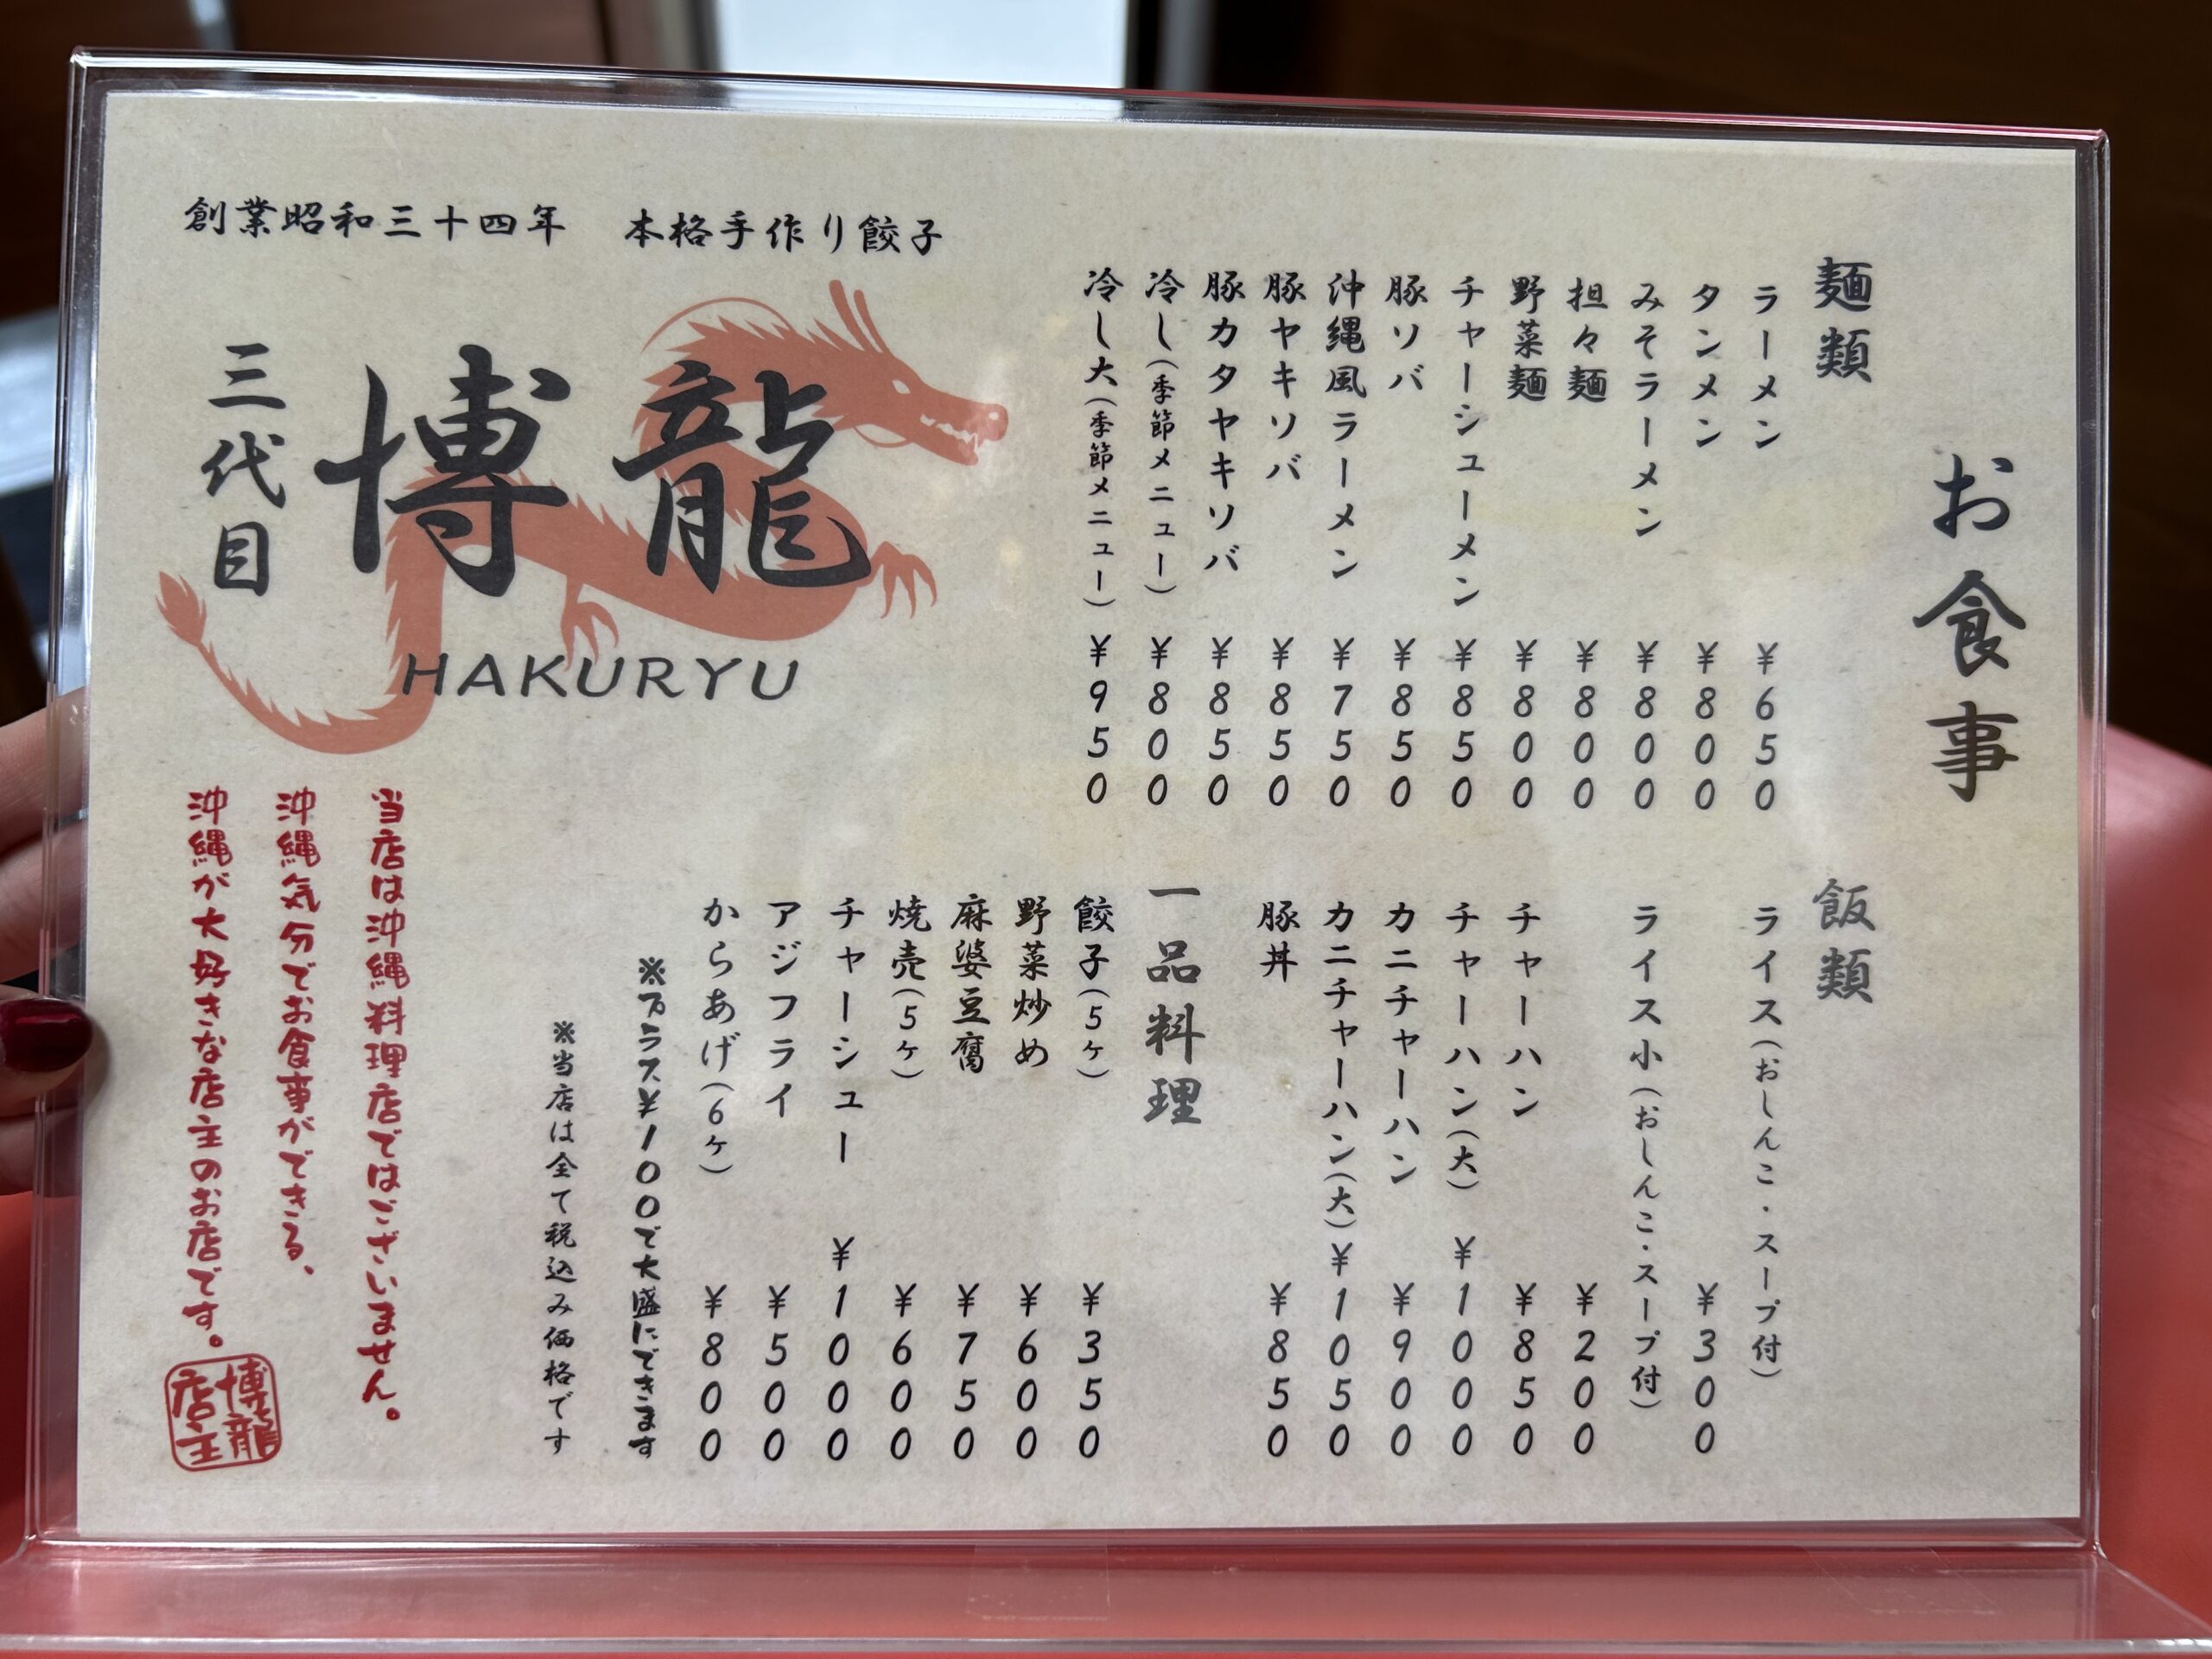 お食事
麺類
ラーメン ¥650
タンメン ¥800
みそラーメン ¥800
担々麺 ¥800
野菜麺 ¥800
チャーシューメン ¥850
豚ソバ ¥850
沖縄風ラーメン ¥750
豚ヤキソバ ¥850
豚カタヤキソバ ¥850
冷し(季節メニュー) ¥800
冷し大(季節メニュー) ¥950
飯類
ライス(おしんこ・スープ付)
¥300
ライス小(おしんこ・スープ付)
¥200
チャーハン ¥850
チャーハン(大) ¥1000
カニチャーハン ¥900
カニチャーハン(大) ¥1050
豚丼 ¥850
一品料理
餃子(5ヶ) ¥350
野菜炒め ¥600
麻婆豆腐 ¥750
焼売(5ヶ) ¥600
チャーシュー ¥1000
アジフライ ¥500
からあげ(6ヶ) ¥800
※プラス¥100で大盛にできます
※当店は全て税込み価格です
創業昭和三十四年 本格手作り餃子
三代目
博龍
HAKURYU
当店は沖縄料理店ではございません。
沖縄気分でお食事ができる、
沖縄が大好きな店主のお店です。
博龍
店主